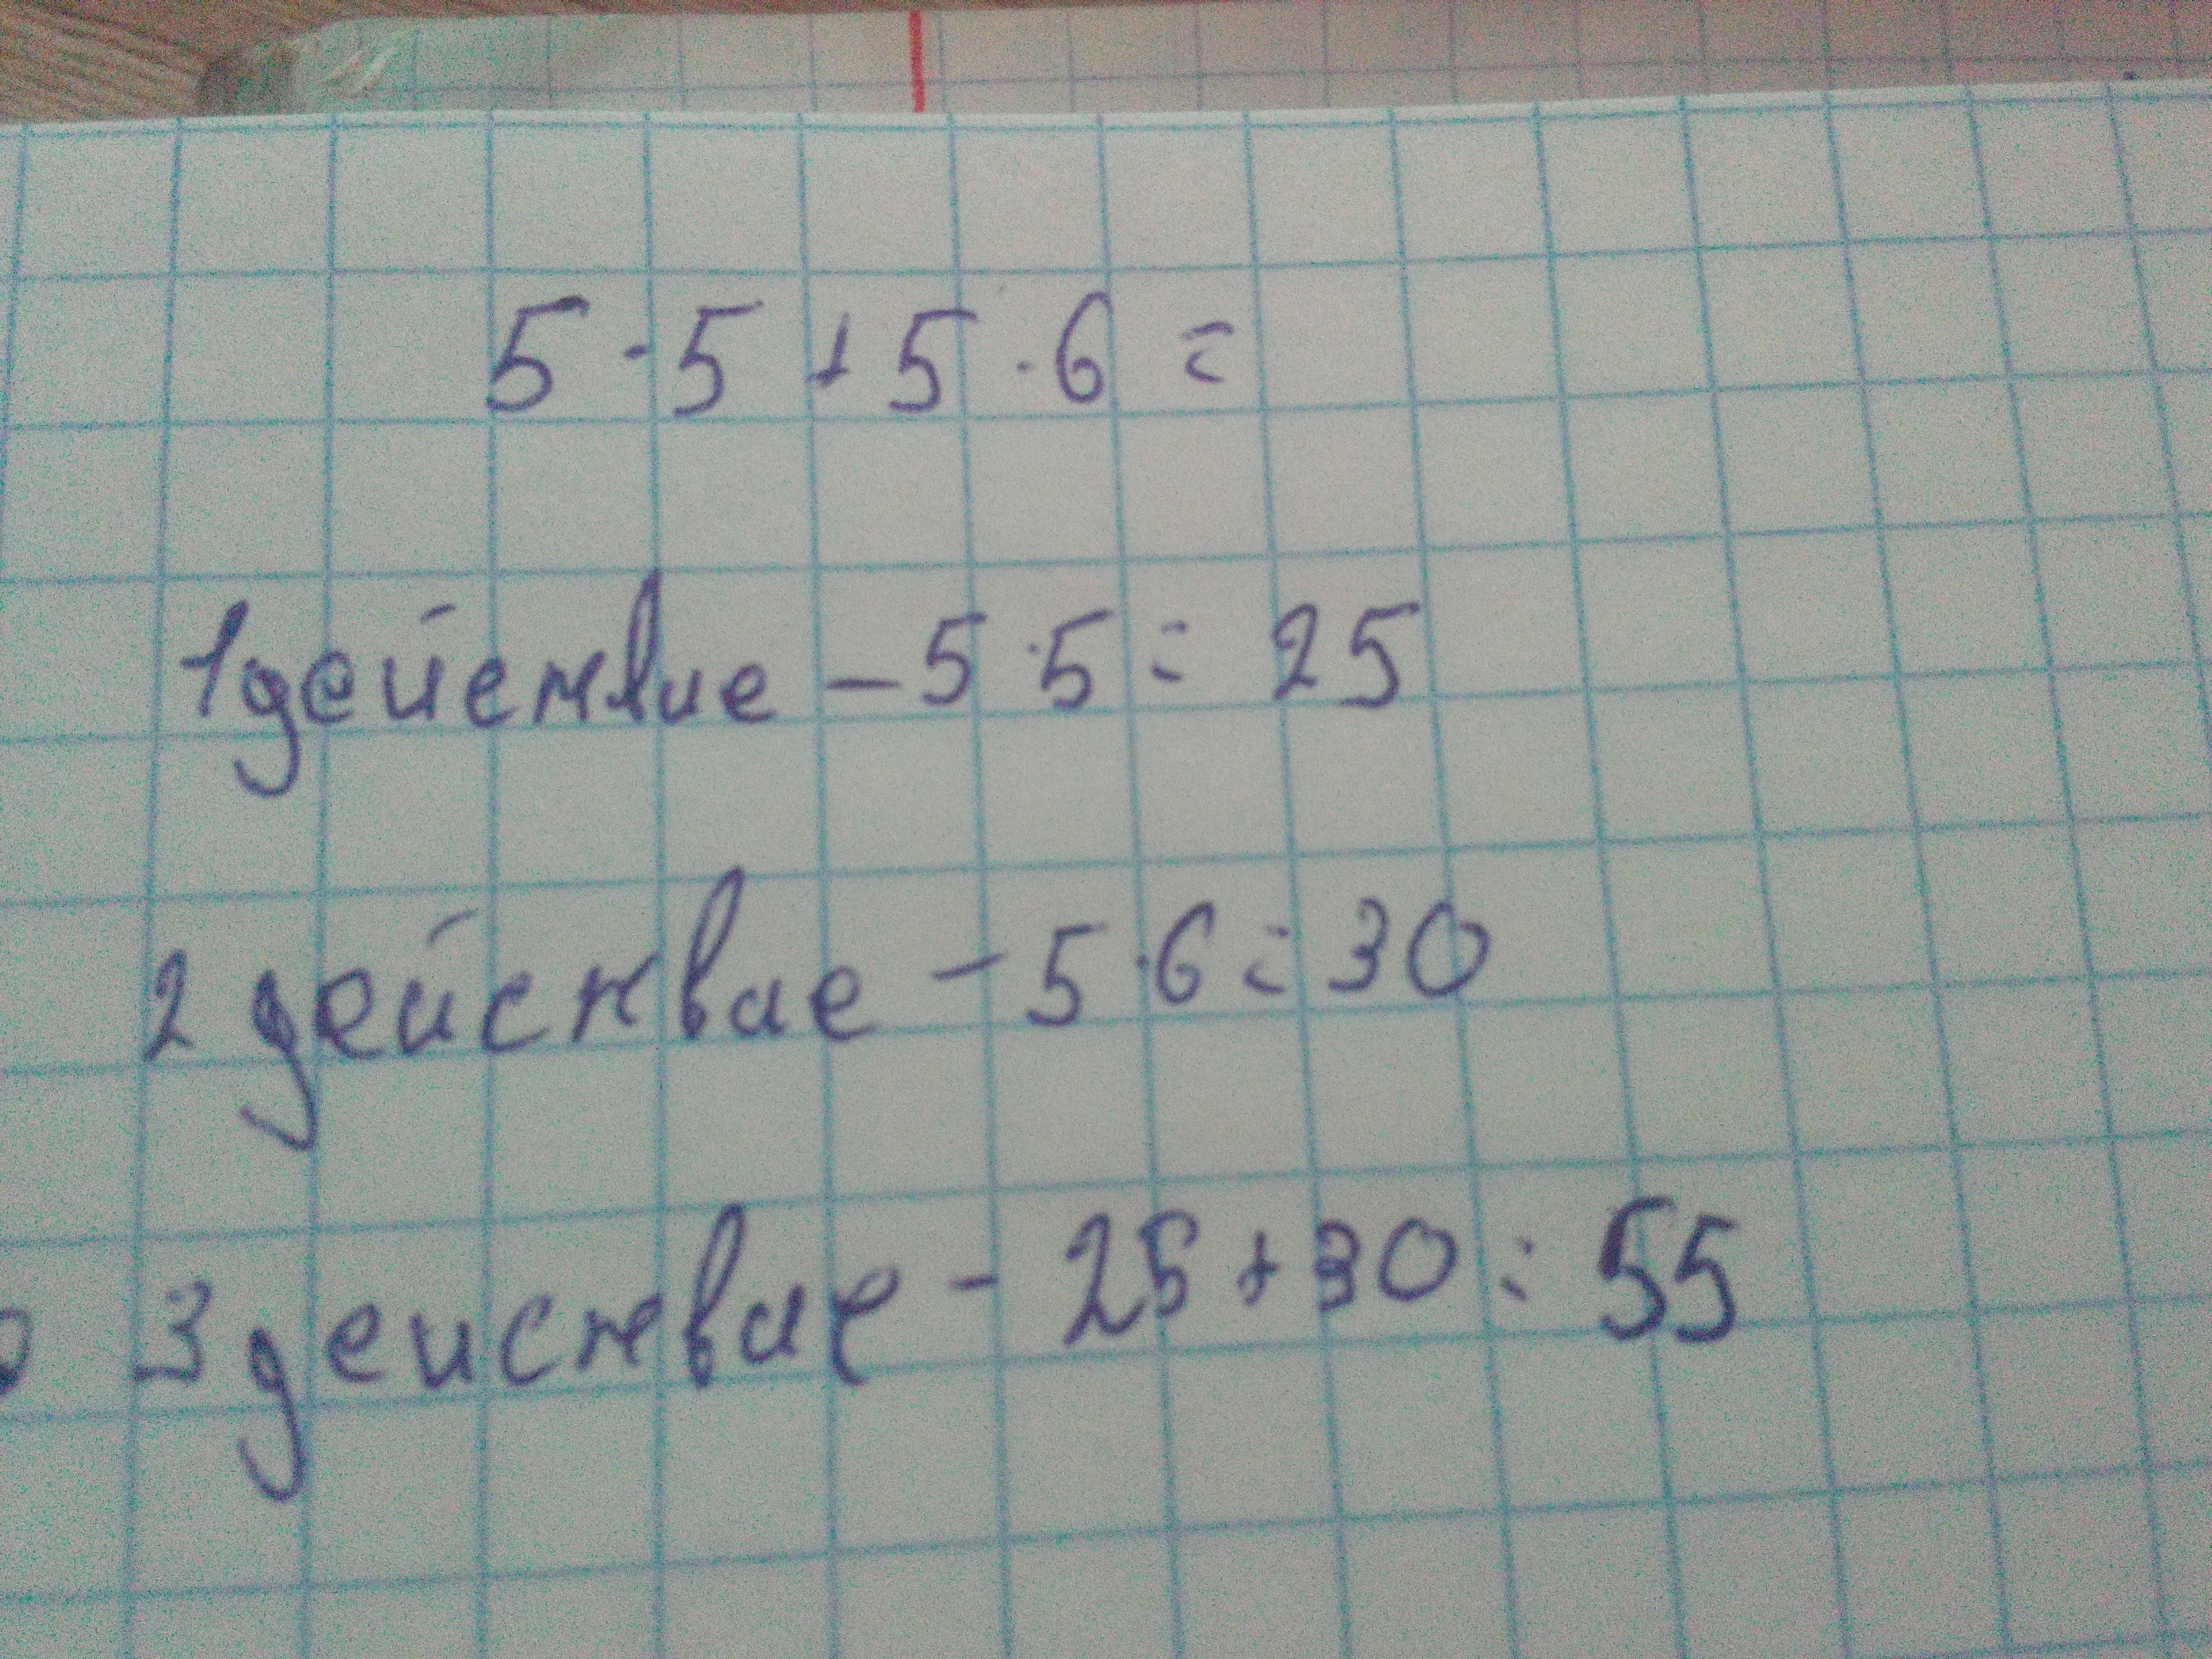 5·5+5·6=
1 действие – 5·5=25
2 действие – 5·6=30
3 действие – 25+30=55